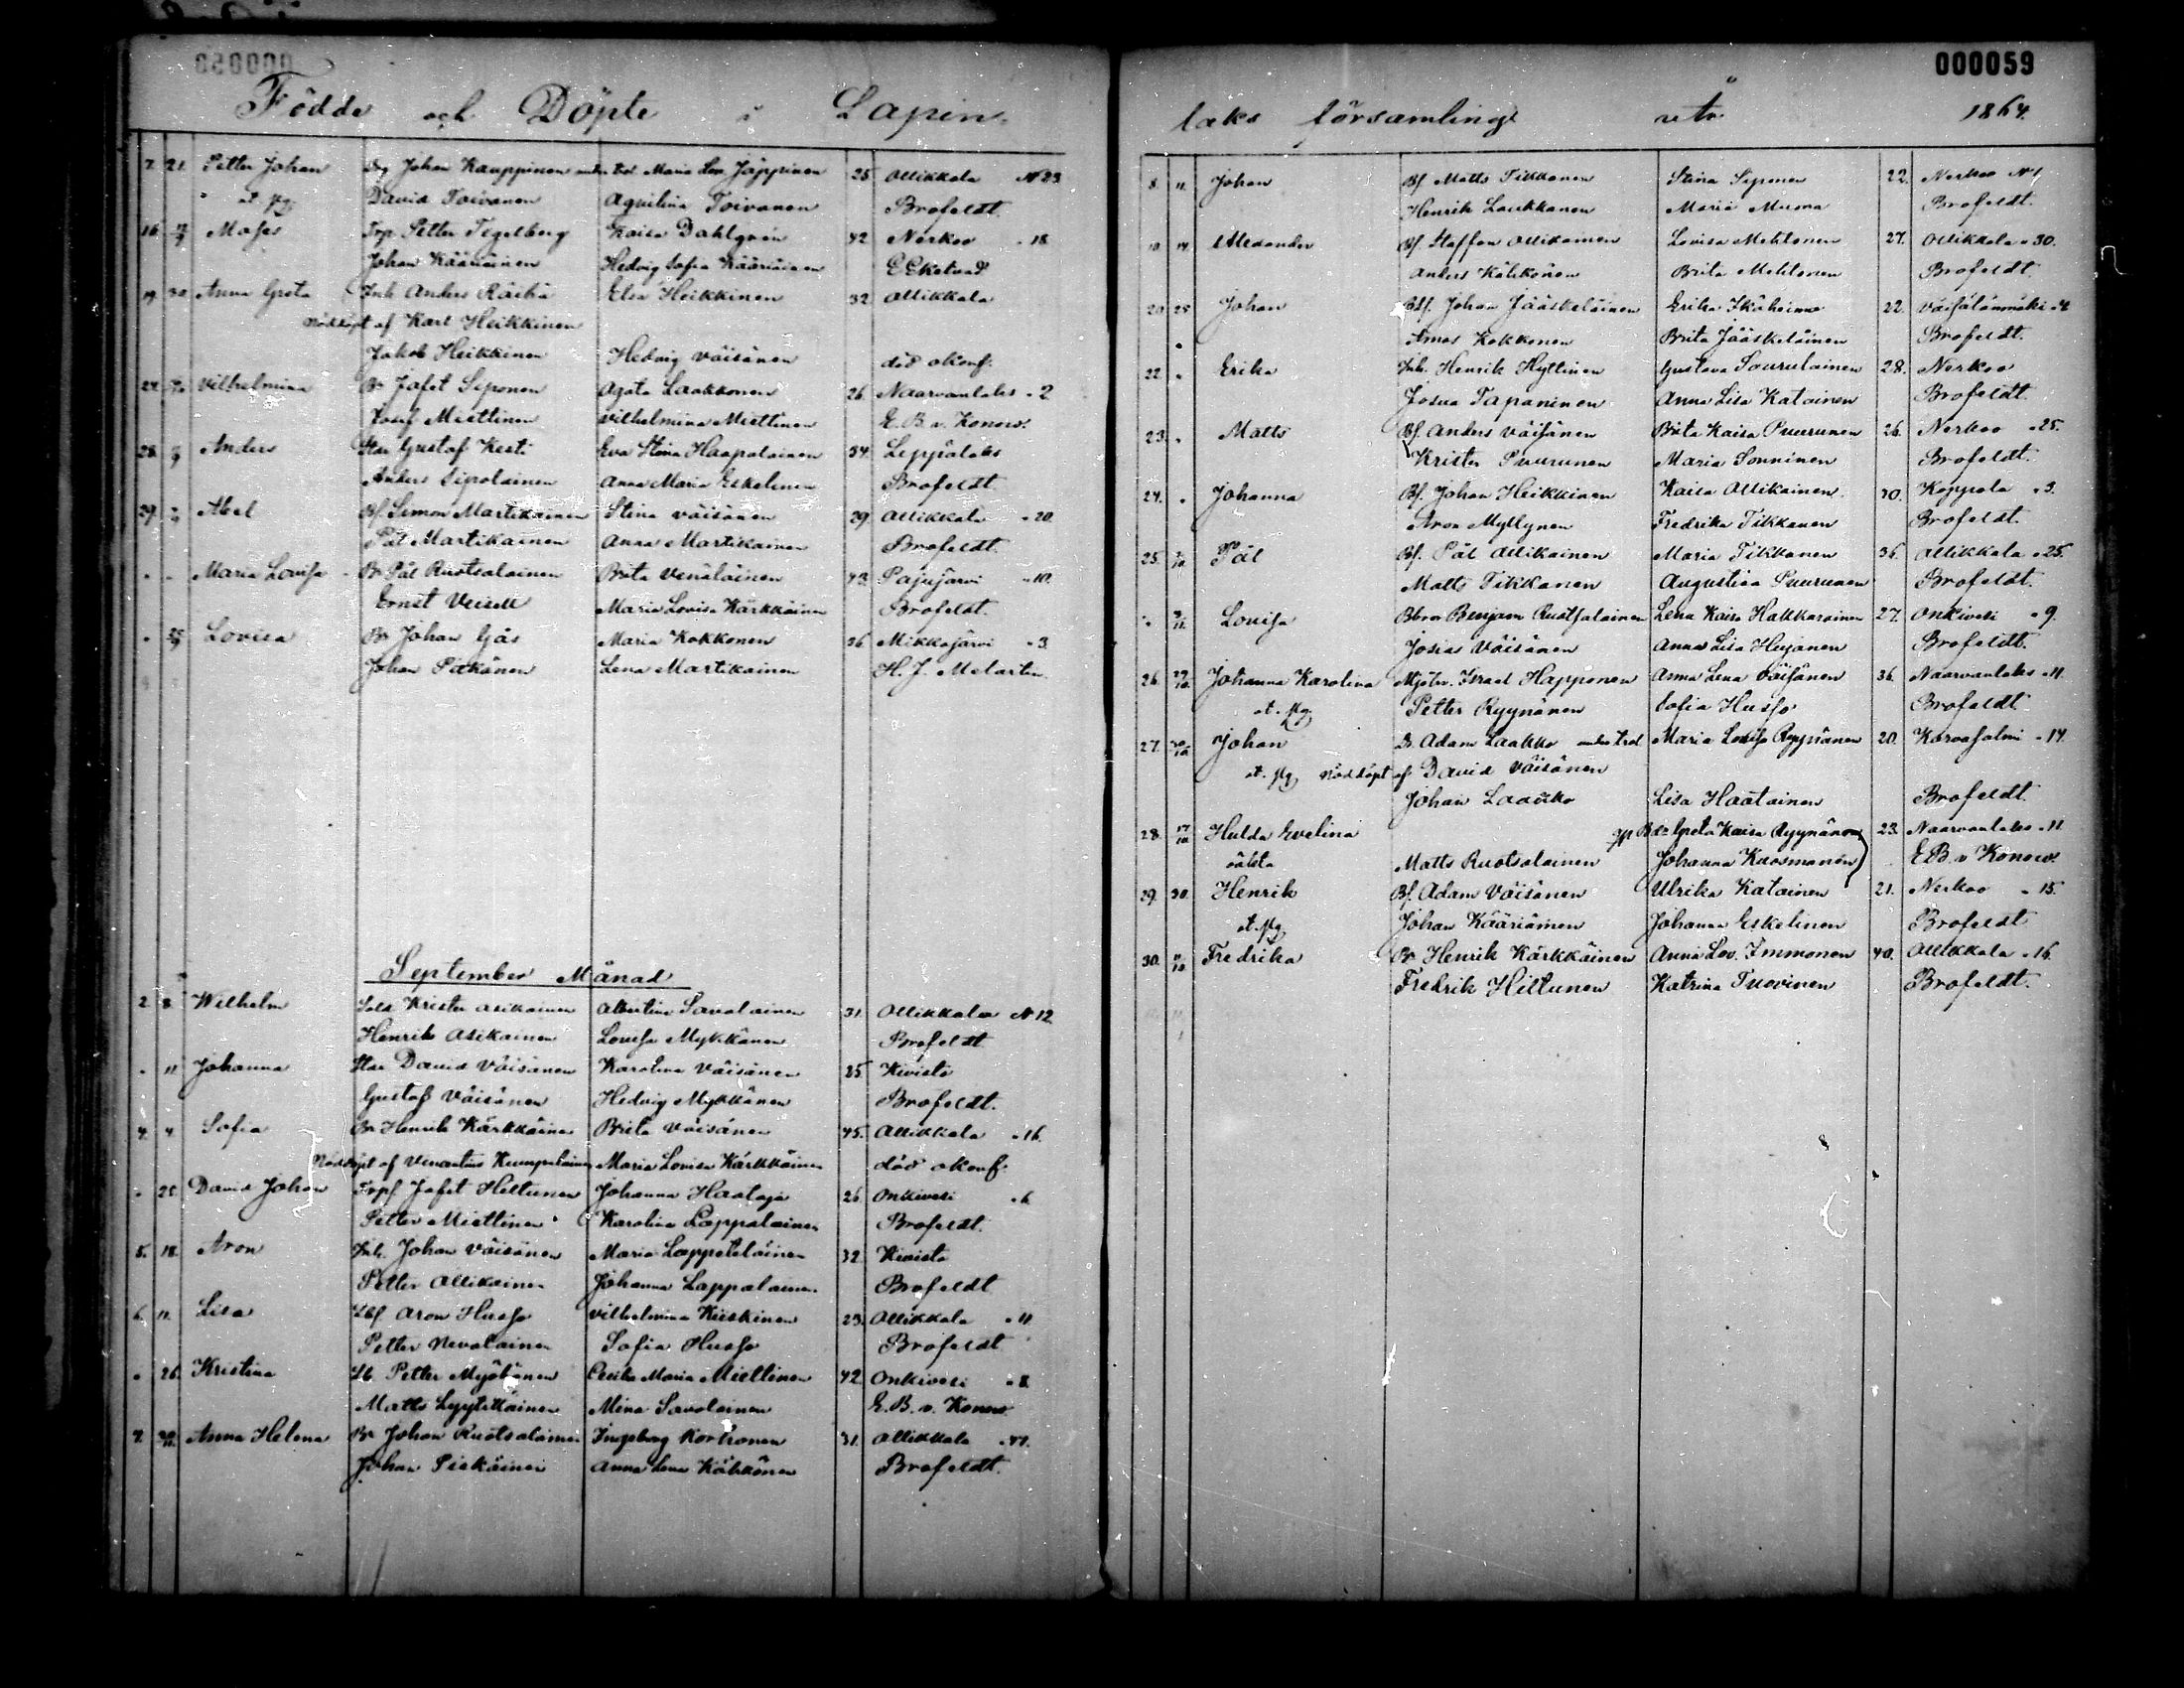 000059
Födde och Döpte i Lapin-
7. 21. Petter Johan Dg Johan Kauppinen Maria Lov. Jäppinen 25 Ollikkala N 23.
David Toivanen Aquilina Toivanen Brofeldt.
16. Moses Trp Petter Tegelberg Kaisa Dahlgrén 42 Nerkoo " 18
Johan Kääriäinen Hedvig Sofia Kääriäinen E Ekstrand
19. 30. Anna Greta Inh Anders Räihä Elsa Heikkinen 32. Ollikkala
Nöddöpt af Karl Heikkinen
Jakob Heikkinen Hedvig Väisänen död okonf:
Vilhelmina Br Jafet Seponen Agata Laakkonen 26. Naarvanlaks " 2
Josef Miettinen Vilhelmina Miettinen E. B. v. Konow.
28. Anders Gustaf Kesti Eva Stina Haapalainen 34. Leppälaks
Anders Sipolainen Anna Maria Eskelinen Brofeldt.
29. Abel Bf Simon Martikainen Stina Väisänen 39. Ollikkala " 20.
Pål Martikainen Anna Martikainen Brofeldt.
" " Maria Lovisa Br Pål Ruotsalainen Brita Venäläinen 43. Pajujärvi " 10.
Ernst Veisell Maria Lovisa Kärkkäinen Brofeldt.
" Lovisa Br Johan Gås Maria Kokkonen 36. Mikkajärvi " 3.
Johan Lena Martikainen H. J. Melartin.
September Månad
2. 8. Wilhelm Sold Krister Asikainen Albertina Savolainen 31. Ollikkala N 12.
Henrik Asikainen Lovisa Mykkänen Brofeldt
" 11. Johanna David Väisänen Karolina Väisänen 25. Kivistö
Gustaf Väisänen Hedvig Mykkänen Brofeldt.
4. 4. Sofia Br Henrik Kärkkäinen Brita Väisänen 45. Ollikkala " 16.
Nöddöpt af Venantius Kumpulainen Maria Lovisa Kärkkäinen död okonf:
" 25. David Johan Jafet Hiltunen Johanna Haataja 26 Onkivesi " 6.
Petter Miettinen Karolina Lappalainen Brofeldt.
5. 18. Aron Inh. Johan Väisänen Maria Lappeteläinen 32. Kivistö
Petter Ollikainen Johanna Lappalainen Brofeldt
6. 11. Lisa Aron Husso Vilhelmina Kieskinen 23. Ollikkala " 11
Petter Nevalainen Sofia Husso Brofeldt
" 26. Kristina Petter Myöhänen Cecilia Maria Miettinen 42. Onkivesi " 8.
Matts Lyytikäinen Mina Savolainen E. B. v. Konow
7. Anna Helena Br Johan Ruotsalainen Ingeborg Korhonen 31. Ollikkala " 47.
Johan Anna Lena Kähkönen Brofeldt.
laks församling utr År 1864.
8. 11. Johan Bf Matts Tikkanen Stina Seponen 22. Nerkoo N 1
Henrik Laukkanen Maria Brofeldt.
10 14 Alexander Bf Staffan Ollikainen Lovisa Mehtonen 27. Ollikkala " 30.
Anders Kähkönen Brita Mehtonen Brofeldt.
20 25 Johan Johan Jääskeläinen Erika Ikäheimo 22. Väisälänmäki " 4
Amos Kokkonen Brita Jääskeläinen Brofeldt.
22. " Erika Inh. Henrik Hyttinen Gustava Saurulainen 28. Nerkoo
Josua Tapaninen Anna Lisa Katainen Brofeldt
23. " Matts Bf. Anders Väisänen Brita Kaisa Puurunen 26. Nerkoo " 25.
Krister Puurunen Maria Sonninen Brofeldt.
24. " Johanna Bf. Johan Heikkinen Kaisa Ollikainen 30. Koppola " 3.
Aron Myllynen Fredrika Tikkanen Brofeldt.
25. Pål Bf. Pål Ollikainen Maria Tikkanen 36. Ollikkala " 25.
Matts Tikkanen Augustina Puurunen Brofeldt.
" Lovisa Benjam Ruotsalainen Lena Kaisa Hakkarainen 27. Onkivesi " 9.
Josias Väisänen Anna Lisa Heijanen Brofeldt.
26. 29/10 Johanna Karolina Israel Happonen Anna Lena Väisänen 36. Naarvanlaks " 11.
Petter Ryynänen Sofia Husso Brofeldt
27. Johan D. Adam Laakko Maria Lovisa Ryynänen 20. Karvasalmi " 14.
Nöddöpt af David Väisänen
Johan Laakko Lisa Haatainen Brofeldt.
28. 17/10 Hulda Evelina Greta Kaisa Ryynänen 23. Naarvanlaks " 11
oäkta Matts Ruotsalainen Johanna Kuosmanen E B v Konow.
29. 30. Henrik Bf. Adam Väisänen Ulrika Katainen 21. Nerkoo " 15.
Johan Kääriäinen Johanna Eskelinen Brofeldt
30. Fredrika Br Henrik Kärkkäinen Anna Lov. Immonen 40. Ollikkala " 16.
Fredrik Hiltunen Katrina Tuovinen Brofeldt.